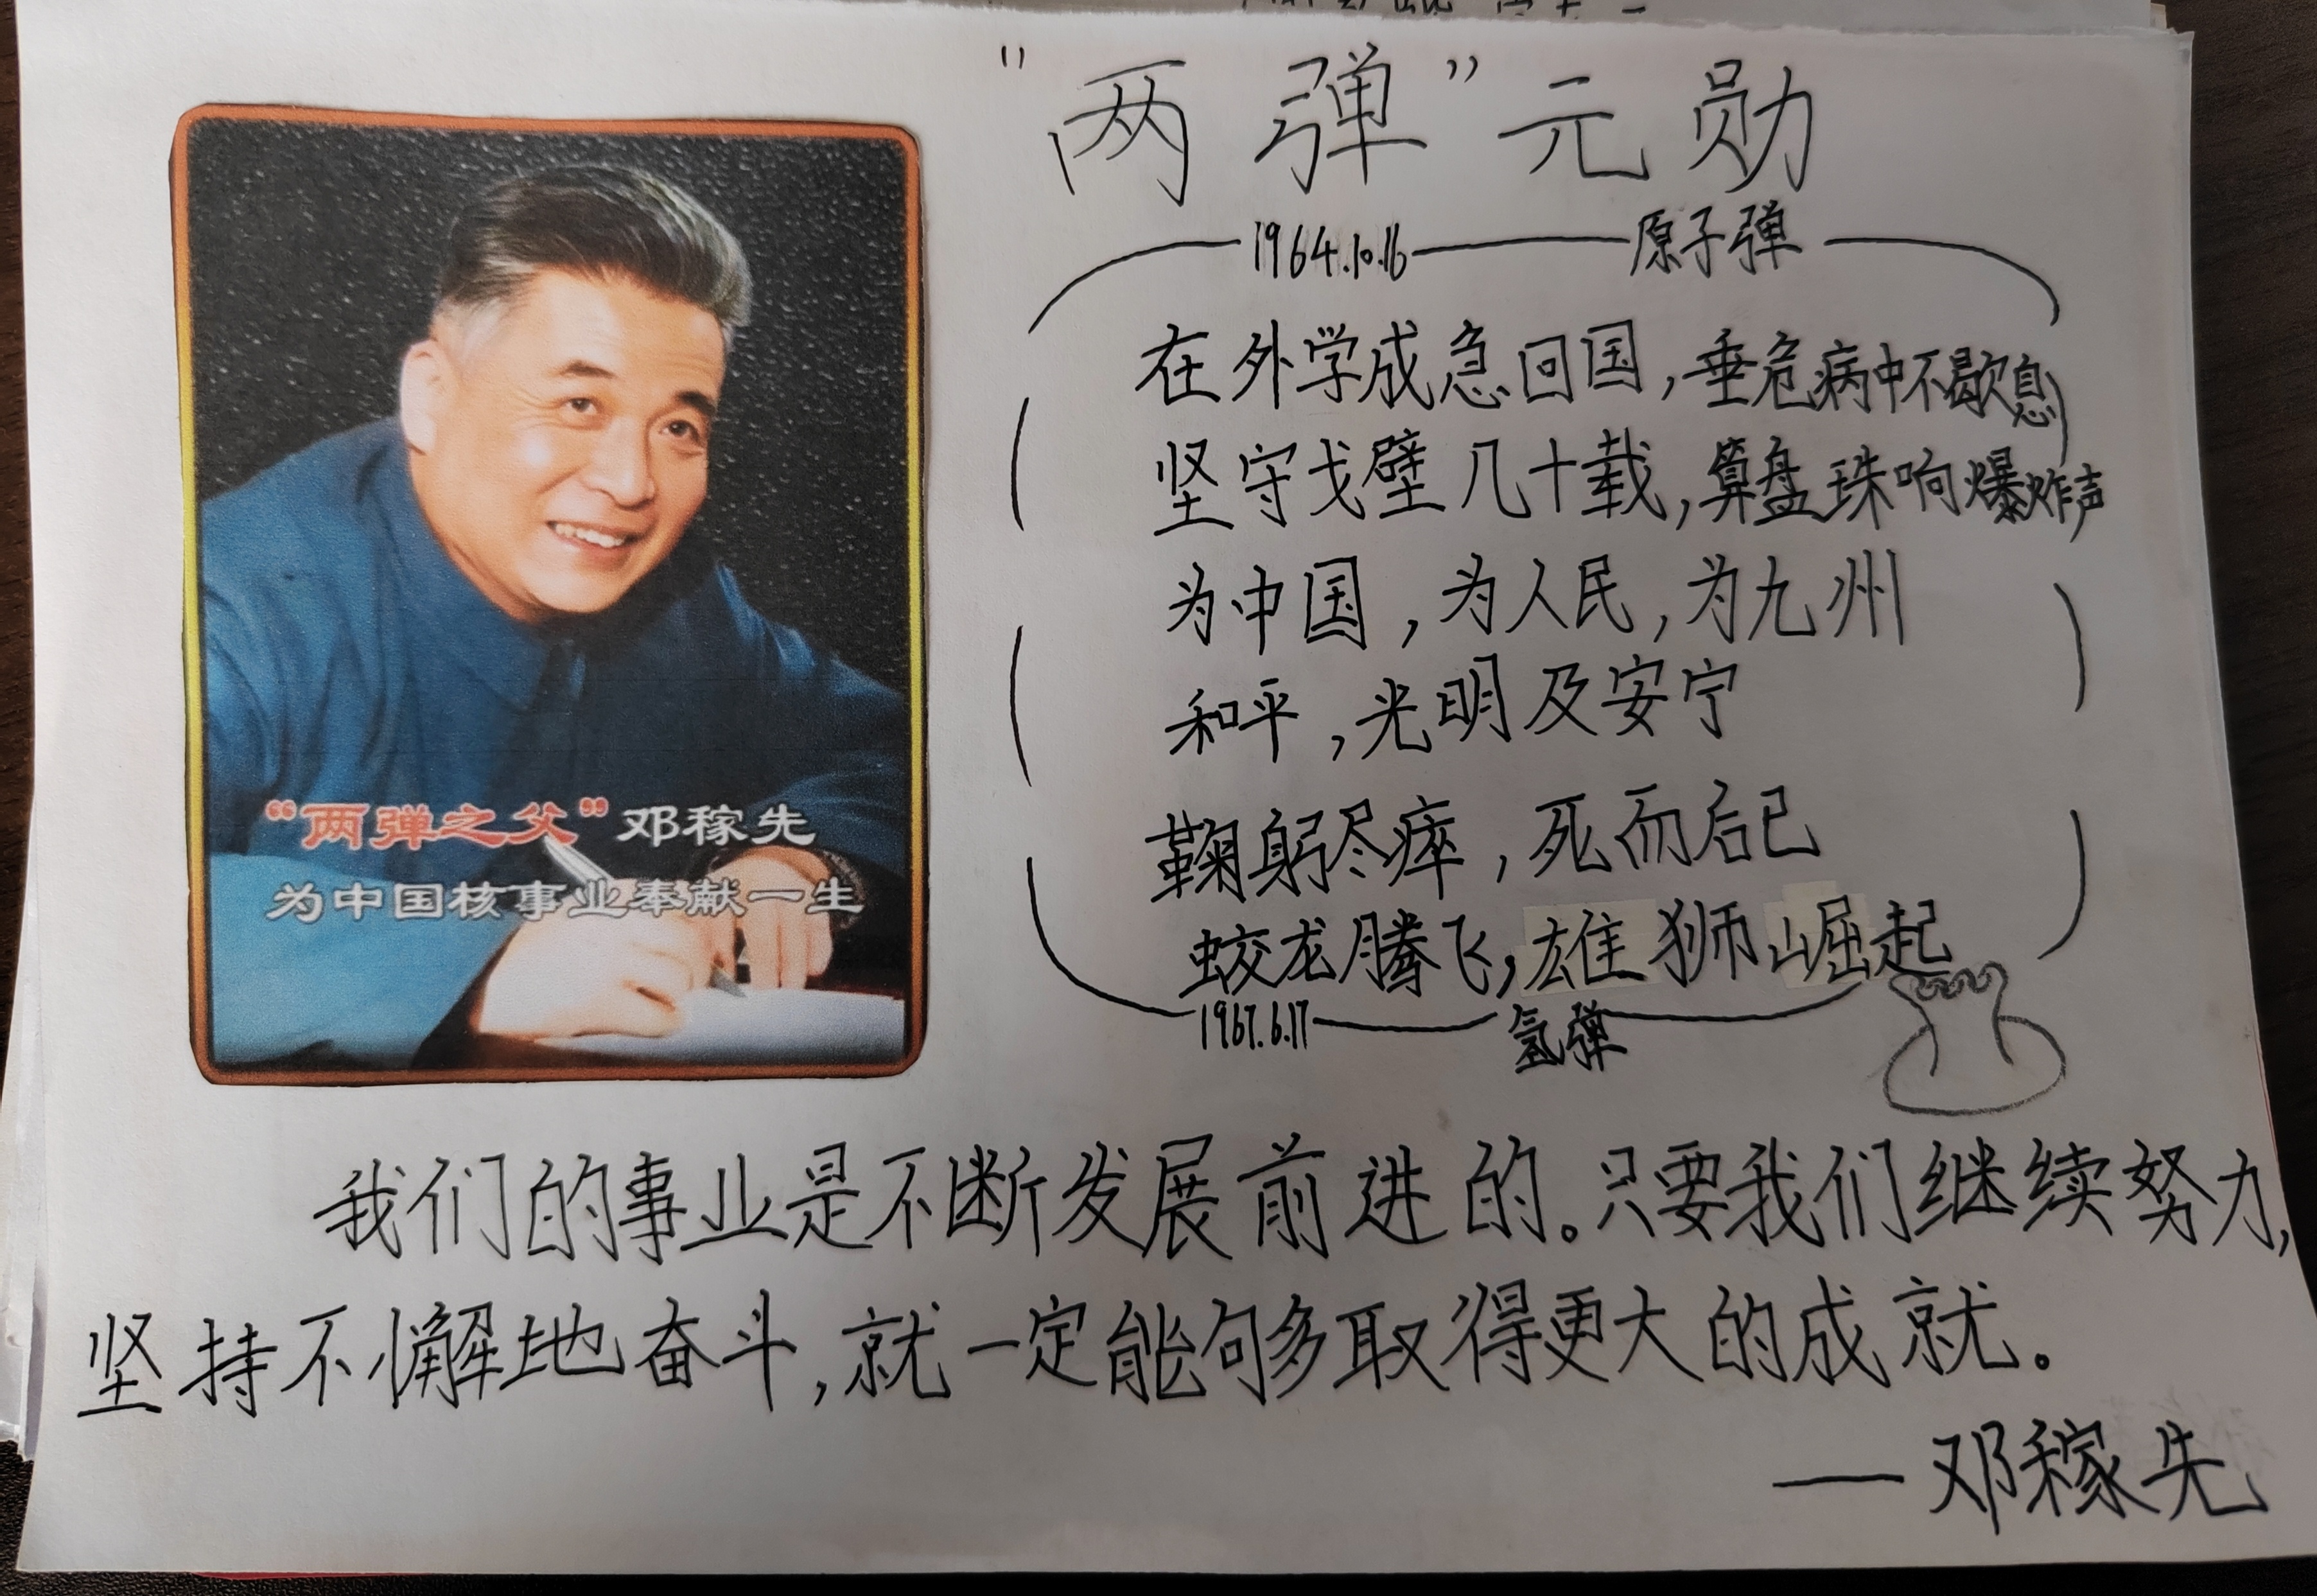 “两弹”元勋
1964.10.16 原子弹
在外学成急回国,垂危病中不歇息
坚守戈壁几十载,算盘珠响爆炸声
为中国,为人民,为九州
和平,光明及安宁
鞠躬尽瘁,死而后已
蛟龙腾飞,雄狮崛起
1967.6.17 氢弹
“两弹之父”邓稼先
为中国核事业奉献一生
我们的事业是不断发展前进的。只要我们继续努力,
坚持不懈地奋斗,就一定能够取得更大的成就。
——邓稼先